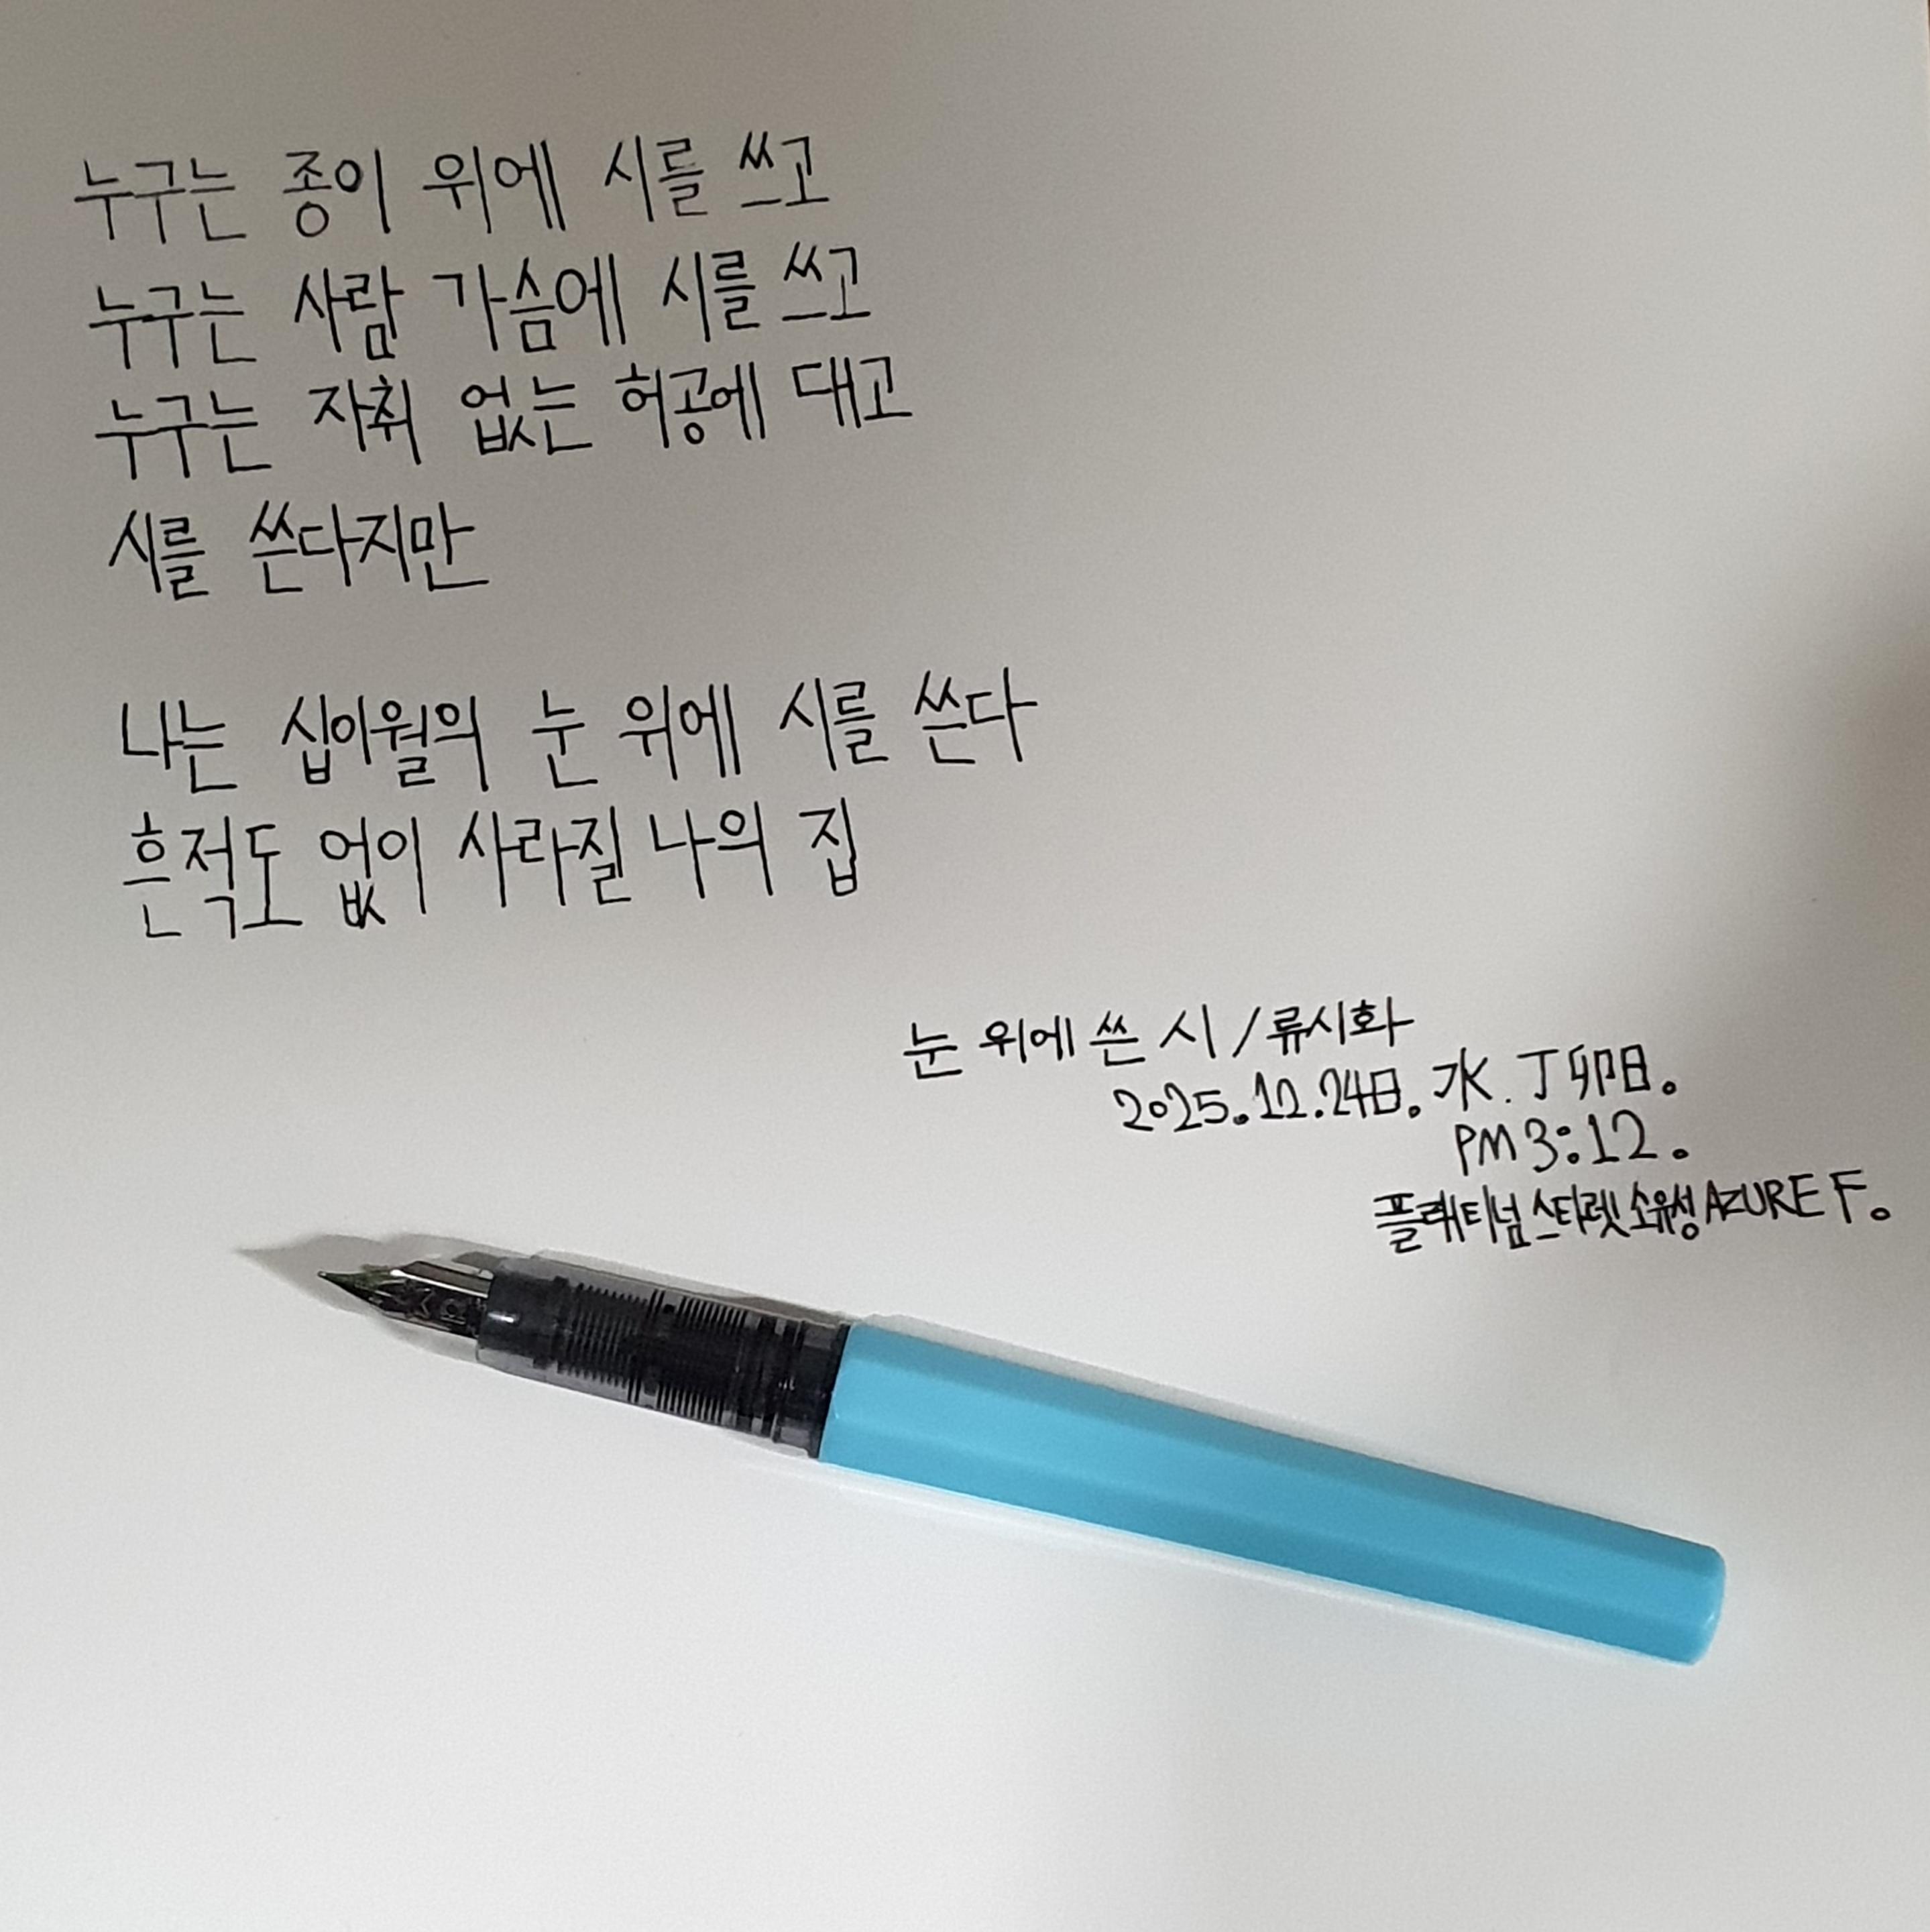 누구는 종이 위에 시를 쓰고
누구는 사람 가슴에 시를 쓰고
누구는 자취 없는 허공에 대고
시를 쓴다지만
나는 십이월의 눈 위에 시를 쓴다
흔적도 없이 사라질 나의 집
눈 위에 쓴 시 / 류시화
2025.12.24日. 水. 丁卯日.
PM 3:12.
플래티넘 스타렛 소유성 AZURE F.